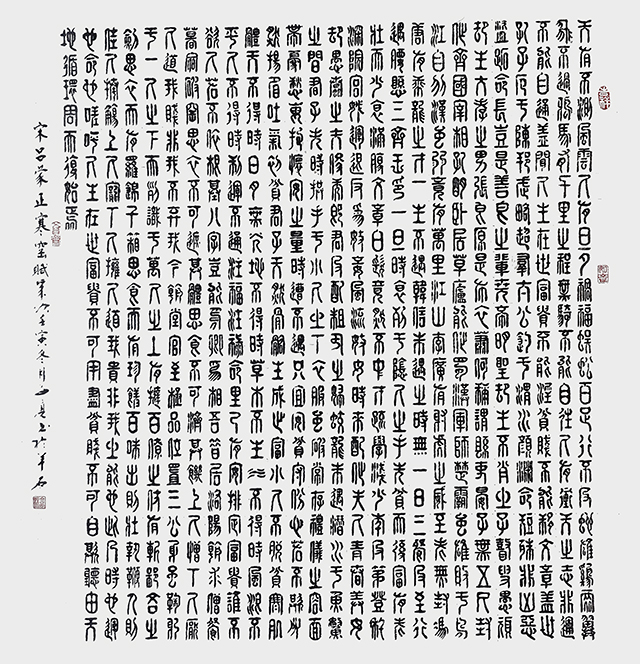 天有不測風雲人有旦夕禍福蜈蚣百足行不及蛇雄雞兩翼
飛不過鴉馬有千里之程無騎不能自往人有衝天之志非運
不能自通蓋聞人生在世富貴不能淫貧賤不能移文章蓋世
孔子厄于陳邦武略超羣太公釣于渭水顏淵命短殊非凶惡
盜跖命長豈是善良之輩堯帝明聖却生不肖之子瞽叟愚頑
却生大孝之男張良原是布衣蕭何稱謂縣吏晏子無五尺封
作齊國宰相孔明臥居草廬能作蜀漢軍師楚霸雖雄敗于烏
江自刎漢王雖弱竟有萬里江山李廣有射虎之威至老無封馮
唐有乘龍之才一生不遇韓信未遇之時無一日三餐及至行
運腰懸三齊玉印一旦時衰死于陰人之手先貧而後富有老
壯而少衰滿腹文章白髮竟然不中才疏學淺少年及第登科
深院宮娥運退反爲妓妾風流妓女時來配作夫人青春美女
却招愚蠢之夫俊秀郎君反配粗醜之婦蛟龍未遇潛水于魚鱉
之間君子失時拱手于小人之下衣服雖破常存禮儀之容面
帶憂愁每抱懷安之量時遭不遇只宜安貧守份心若不欺必
然揚眉吐氣初貧君子天然骨骼生成乍富小人不脫貧寒肌
體天不得時日月無光地不得時草木不生水不得時風浪不
平人不得時利運不通注福注祿命里已安排定富貴誰不
欲人若不依根基八字豈能爲卿爲相吾昔居洛陽朝求僧餐
暮宿破窰思衣不可遮其體思食不可濟其饑上人憎下人厭
人道我賤非我不弃我今朝堂官至極品位置三公身雖鞠躬
于一人之下而列職于萬人之上有撻百僚之杖有斬鄙吝之
劍思衣而有羅錦千箱思食而有珍饈百味出則壯士執鞭入則
佳人捧觴上人寵下人擁人道我貴非我之能也此乃時也運
也命也嗟呼人生在世富貴不可用盡貧賤不可自欺聽由天
地循環周而復始焉
宋呂蒙正寒窰賦